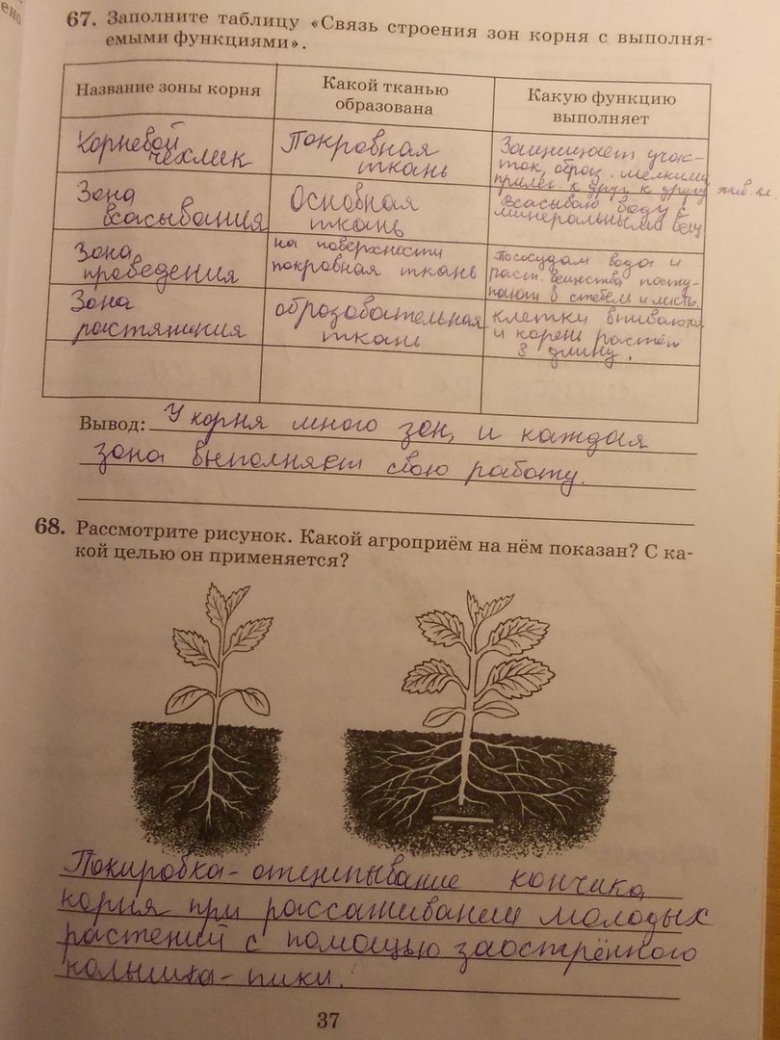 67. Заполните таблицу «Связь строения зон корня с выполня-
емыми функциями».
Название зоны корня
Какой тканью
образована
Какую функцию
выполняет
Корневой
чехлик
Покровная
ткань
Защищает учас-
ток, образ. мелкими
прилег. к друг к другу жив. кл.
Зона
всасывания
Основная
ткань
Всасываю воду с
минеральными вещ
Зона
проведения
на поверхности
покровная ткань
По сосудам вода и
раст. вещества посту-
пают в стебель и
Зона
растяжения
образовательная
ткань
клетки
и корень растёт
в длину.
Вывод: У корня много зон, и каждая
зона выполняет свою работу.
68. Рассмотрите рисунок. Какой агроприём на нём показан? С ка-
кой целью он применяется?
Покировка - отщепывание кончика
корня при рассаживании молодых
растений с помощью заострённого
колышка - пики.
37